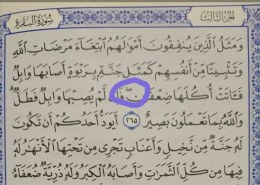 الجزء الثالث
سورة البقرة
وَمَثَلُ الَّذِينَ يُنفِقُونَ أَمْوَالَهُمُ ابْتِغَاءَ مَرْضَاتِ اللَّهِ
وَتَثْبِيتًا مِّنْ أَنفُسِهِمْ كَمَثَلِ جَنَّةٍ بِرَبْوَةٍ أَصَابَهَا وَابِلٌ
فَآتَتْ أُكُلَهَا ضِعْفَيْنِ فَإِن لَّمْ يُصِبْهَا وَابِلٌ فَطَلٌّ
وَاللَّهُ بِمَا تَعْمَلُونَ بَصِيرٌ ٢٦٥ أَيَوَدُّ أَحَدُكُمْ أَن تَكُونَ
لَهُ جَنَّةٌ مِّن نَّخِيلٍ وَأَعْنَابٍ تَجْرِي مِن تَحْتِهَا الْأَنْهَارُ لَهُ
فِيهَا مِن كُلِّ الثَّمَرَاتِ وَأَصَابَهُ الْكِبَرُ وَلَهُ ذُرِّيَّةٌ ضُعَفَاءُ